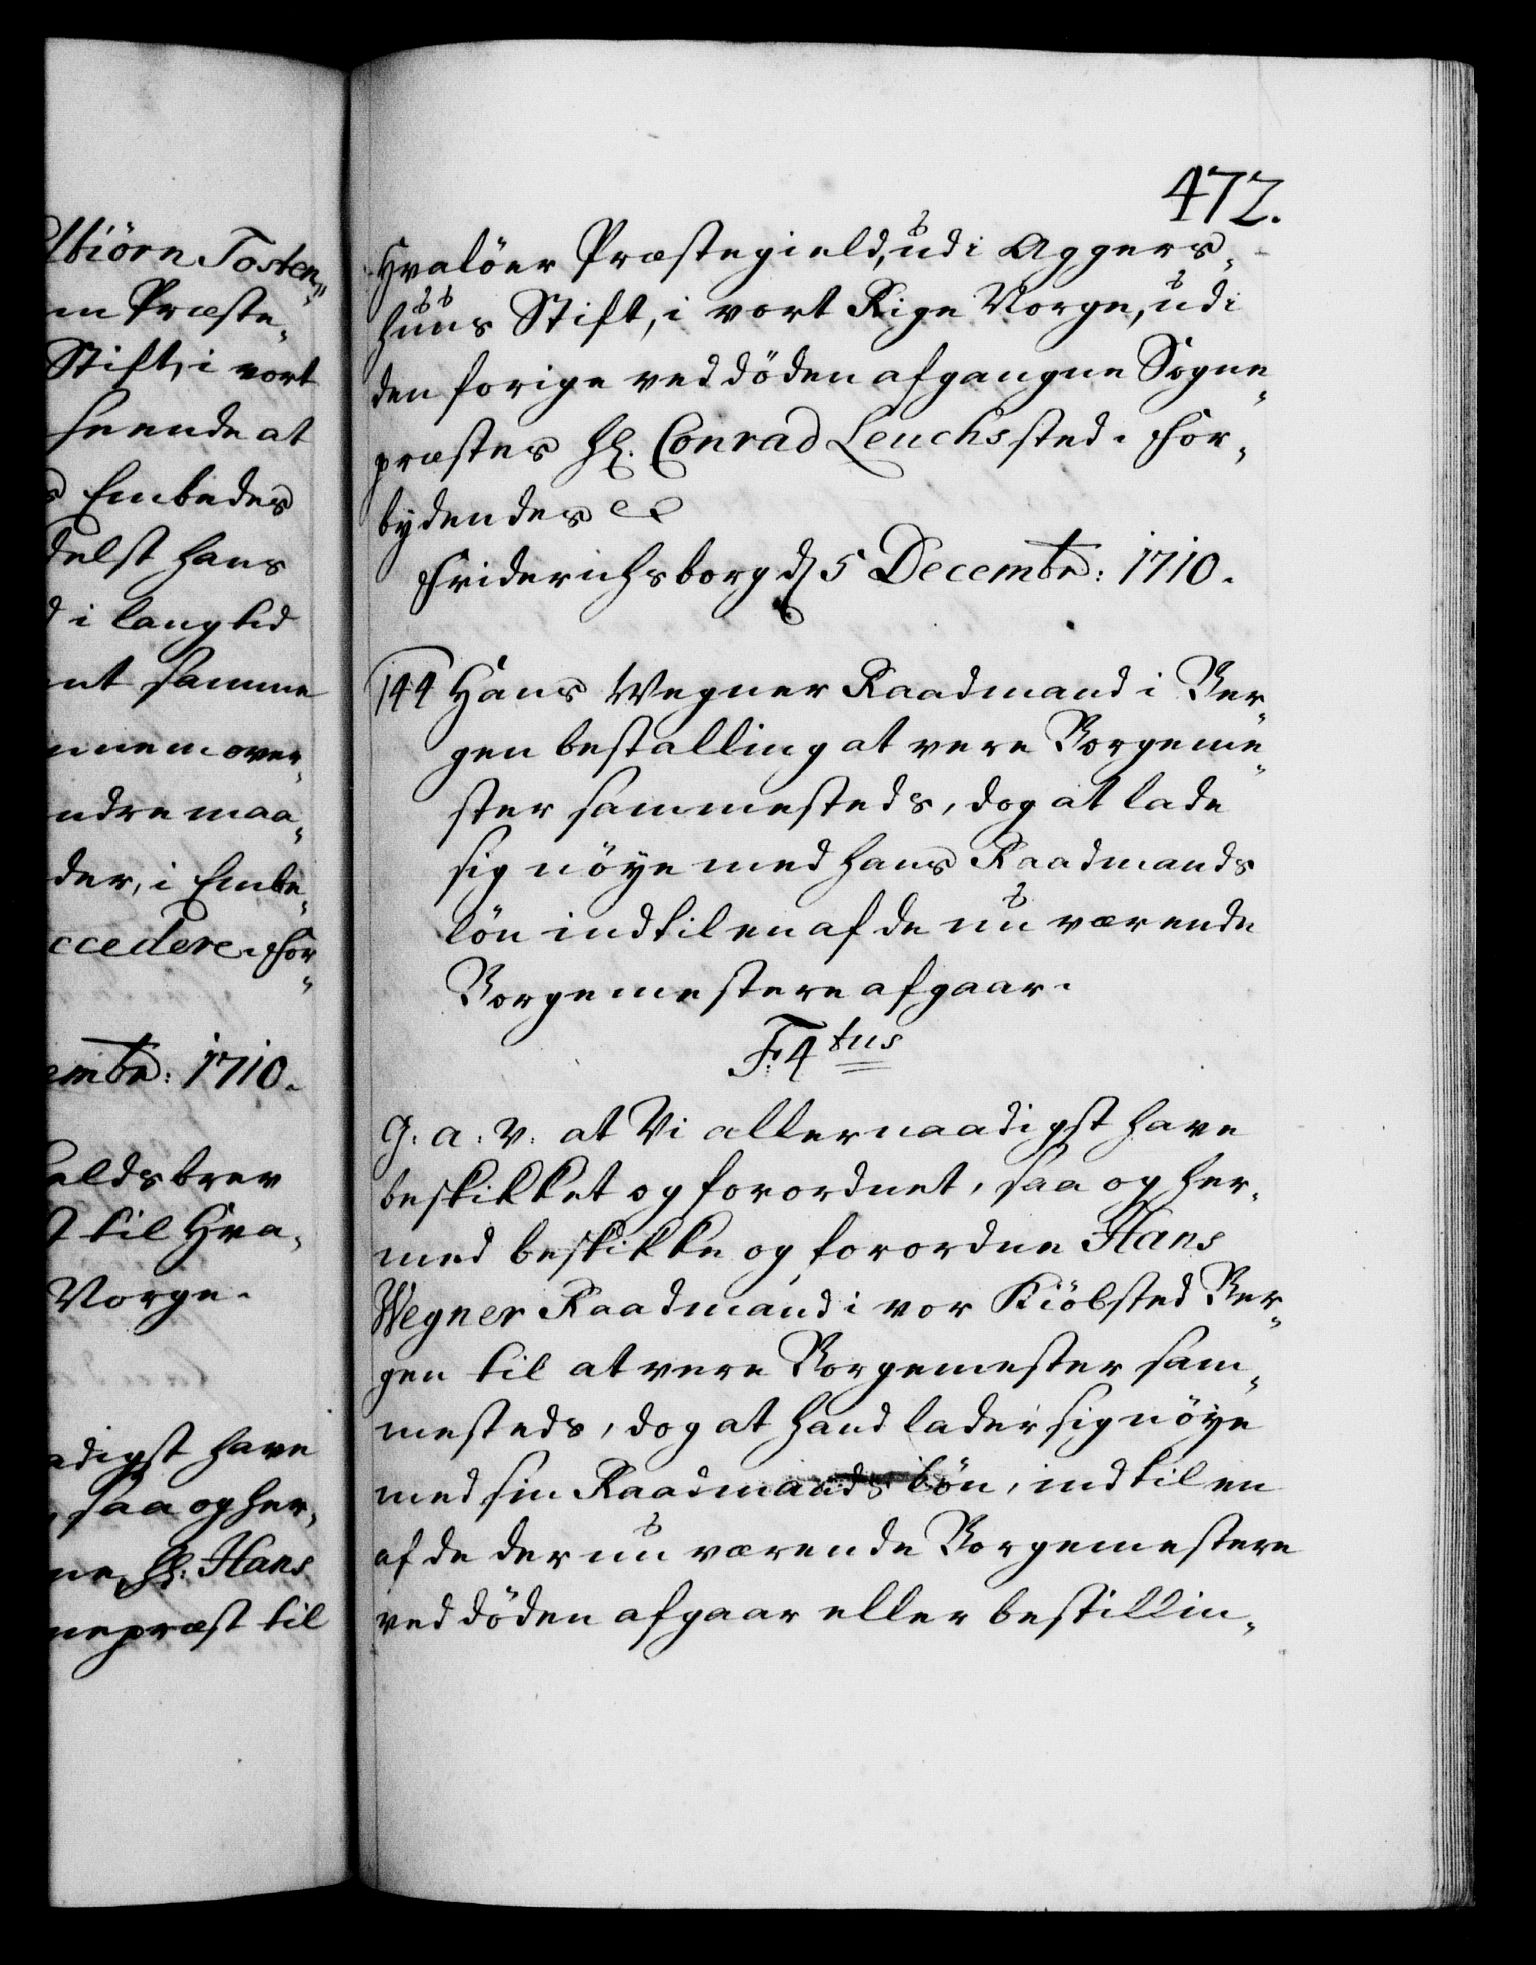 lbiörn Tosten„
m Præste„
Stift, i vort
seende at
s Embedes
delst hans
d i lang tid
ent samme
nnem over„
ndre maa„
der, i Embe„
ccedere. For„
embr: 1710.
aldsbrev
t til Hva„
Norge.
adigst have
, saa og her„
ne, Hr: Hans
nepræst til
472.
Hvalöer Præstegield, udi Aggers„
huus Stift, i vort Rige Norge, udi
den forige ved döden afgangne Sogne„
præstes Hr. Conrad Leuchssted. For„
bydendes etc
Friderichsborg d 5 Decembr: 1710.
144 Hans Wegner Raadmand i Ber„
gen bestalling at vere Borgeme„
ster sammesteds, dog at lade
sig nöye med hans Raadmands
lön indtil en af de nu værende
Borgemestere afgaar.
F. 4tus
G: a: V: at Vi allernaadigst have
beskikket og forordnet, saa og her„
med beskikke og forordne Hans
Wegner Raadmand i vor Kiöbsted Ber„
gen til at vere Borgemester sam„
mesteds, dog at hand lader sig nöye
med sin Raadmands lön, indtil en
af de der nu værende Borgemestere
ved döden afgaar eller bestillin„